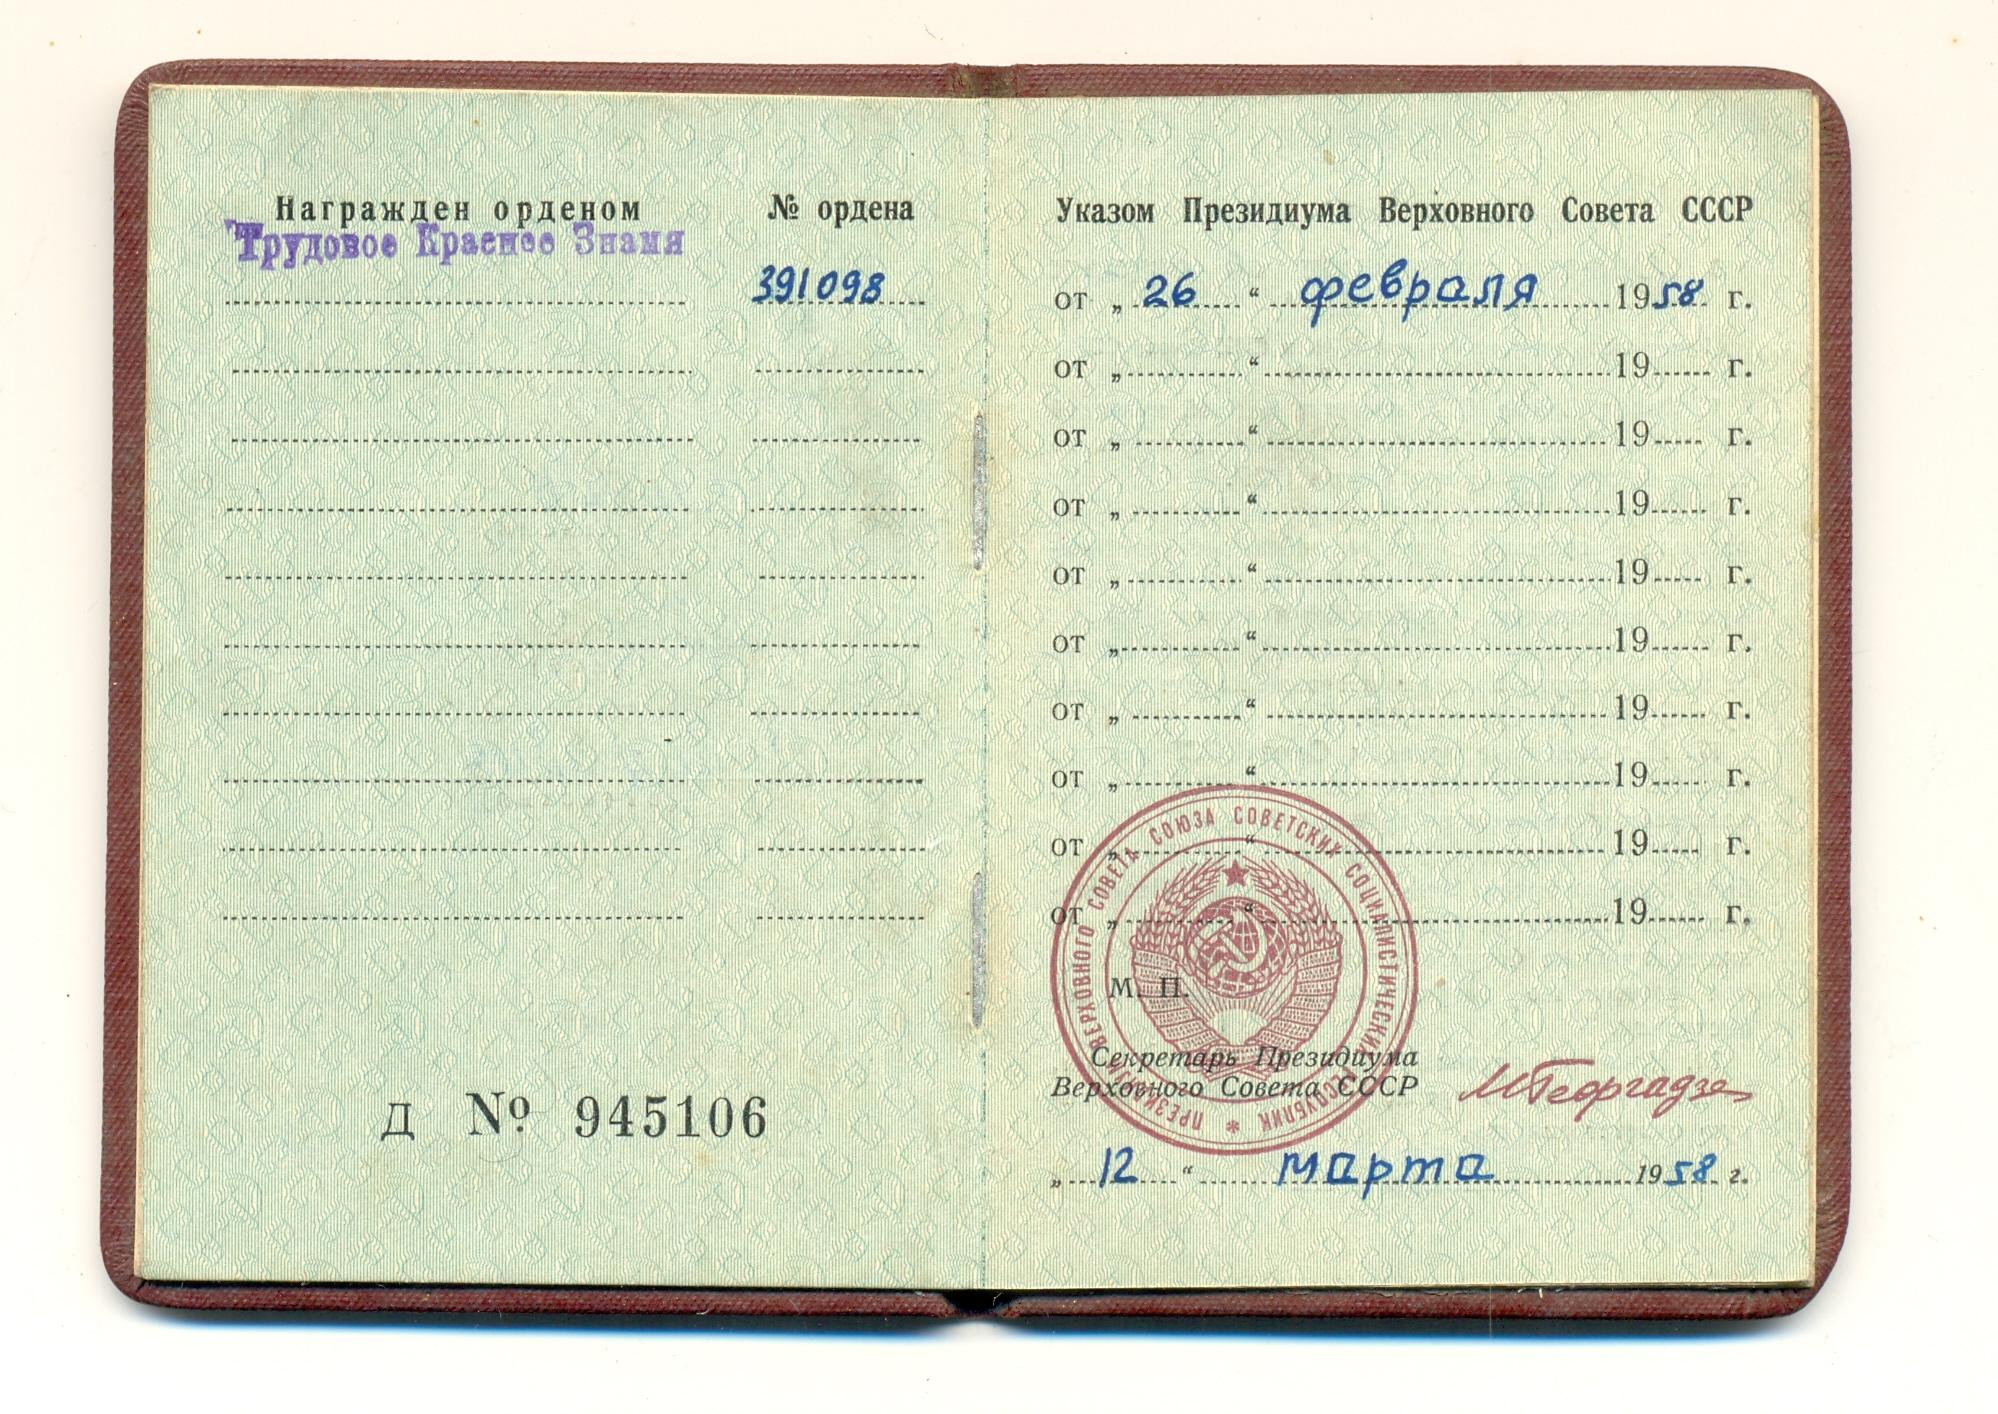 Награжден орденом № ордена
"Трудовое Красное Знамя
391098
Указом Президиума Верховного Совета СССР
от „ 26 “ февраля 1958 г.
от „ “ 19 г.
от „ “ 19 г.
от „ “ 19 г.
от „ “ 19 г.
от „ “ 19 г.
от „ “ 19 г.
от „ “ 19 г.
от „ “ 19 г.
от „ “ 19 г.
ПРЕЗИДИУМ ВЕРХОВНОГО СОВЕТА СОЮЗА СОВЕТСКИХ СОЦИАЛИСТИЧЕСКИХ РЕСПУБЛИК *
М. П.
Секретарь Президиума
Верховного Совета СССР
МГеоргадзе
Д № 945106
„ 12 “ марта 1958 г.